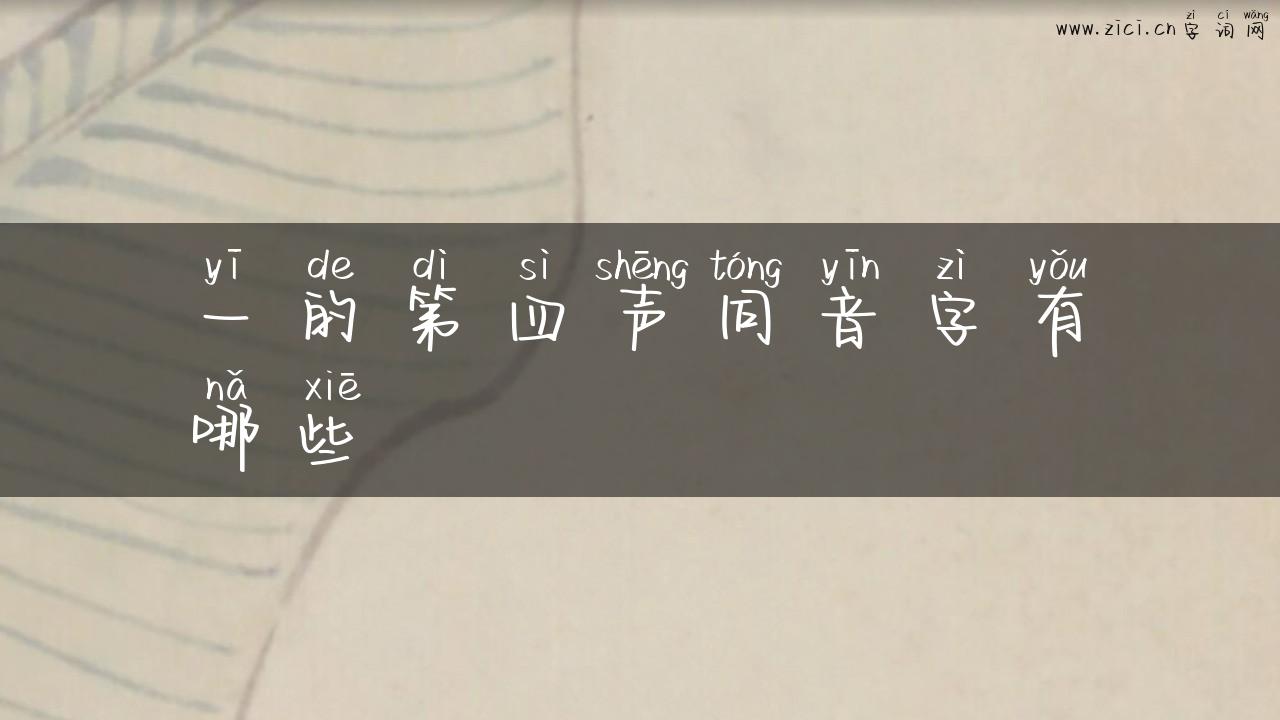 zì cí wǎng
www.zici.cn 字 词 网
yī de dì sì shēng tóng yīn zì yǒu
一 的 第 四 声 同 音 字 有
nǎ xiē
哪 些